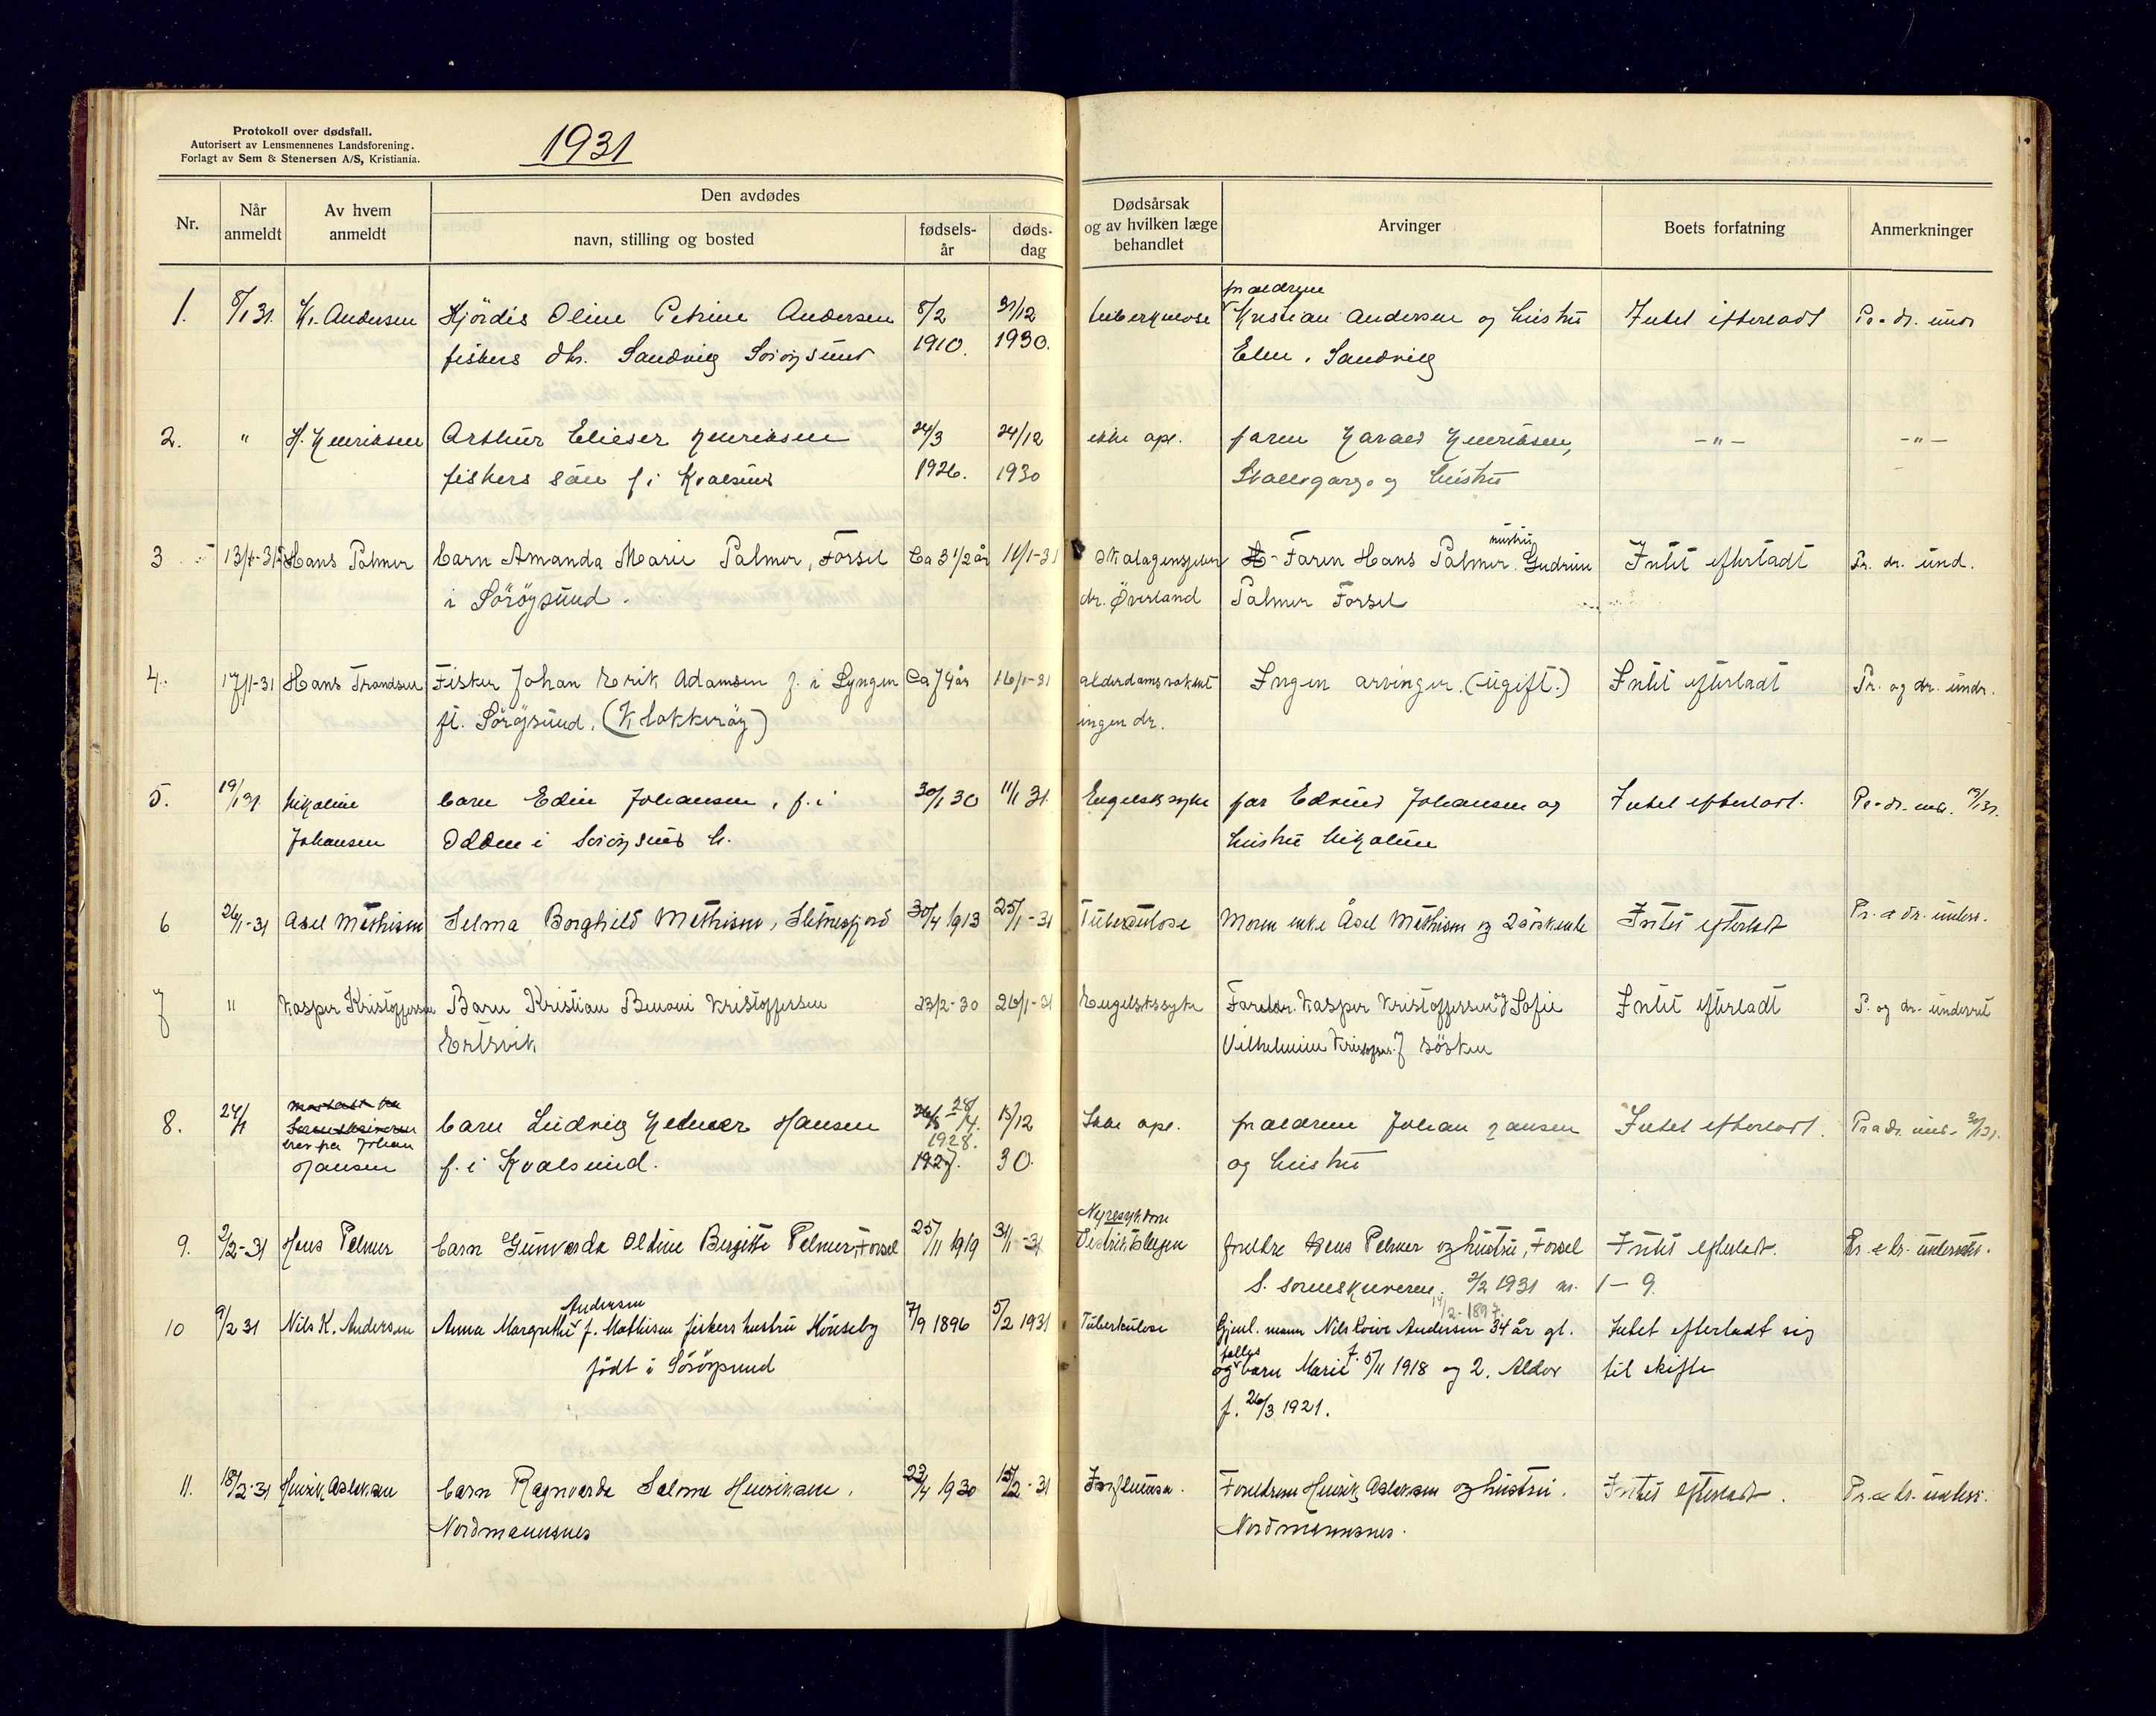 Protokoll over dødsfall.
Autorisert av Lensmennenes Landsforening.
Forlagt av Sem & Stenersen A/S, Kristiania.
1931
Nr.
Når anmeldt
Av hvem anmeldt
Den avdødes
navn, stilling og bosted
fødselsår
dødsdag
Dødsårsak og av hvilken læge behandlet
Arvinger
Boets forfatning
Anmerkninger
1. 8/1 31. Kr. Andersen Hjördis Oline Petrine Andersen 8/2 31/12 tuberkulose Kristian Andersen og hustru Intet efterladt Pr. dr. und
forældrene
fiskers dtr. Sandvig Söröysund 1910. 1930. Elen. Sandvig
2. " H. Henriksen Arthur Elieser Henriksen 24/3 24/12 ikke opl. faren Harald Henriksen, -"- -"-
fiskers sön f. i Kvalsund 1926. 1930 og hustru
3 13/1-31 Hans Palmer barn Amanda Marie Palmer, Forsöl Ca 3 1/2 år 11/1-31 Faren Hans Palmer hustru Gudrun Intet efterladt Pr. dr. und.
i Söröysund. dr. Øverland Palmer Forsöl
4. 17/1-31 Hans Trondsen Fisker Johan Erik Adamsen f. i Lyngen Ca 74 år 16/1-31 alderdomssvakhet Ingen arvinger. (ugift.) Intet efterladt Pr. og dr. undr.
fl. Söröysund. (Klokkeröy) ingen dr.
5. 19/1 31. Nikoline barn Edin Johansen, f. i 30/1 30 11/1 31. Engelsk syke far Edvind Johansen og Intet efterladt. Pr. dr. und. 19/1 31.
Johansen Odden i Söröysund h. hustru Nikoline
6 26/1-31 Åsel Mathisen Selma Borghild Mathisen, Slettnesfjord 30/4 1913 25/1-31 Tuberkulose Moren enke Åsel Mathisen og 2 söskende Intet efterladt Pr. & dr. underr.
7 " Kasper Kristoffersen Barn Kristian Benoni Kristoffersen 23/2-30 26/1-31 Engelsksyke Foreldr. Kasper Kristoffersen og Sofie Intet efterladt P. og dr. underret
Ertsvik Vilhelmine Kristofers. 7 sösken
8. 27/1 brev fra Johan Hansen barn Ludvig Helmer Hansen 28/4. 1928. 15/12 Ikke opl. forældrene Johan Hansen Intet efterladt. Pr & dr. und. 30/1 31.
f. i Kvalsund. 1927. 30. og hustru
9. 2/2-31 Hans Pelmer barn Gunvarda Oldine Birgitte Pelmer, Forsöl 25/11 1919 31/1-31 Nyresykdom Distriktslegen foreldre Hans Pelmer og hustru, Forsöl Intet efterladt. Pr. & dr. underrettet.
S. sorenskriveren. 2/2 1931 nr. 1-9.
10 9/2 31 Nils K. Andersen Anna Margrethe Andersen f. Mathisen fiskers hustru Hönseby 7/9 1896 5/2 1931 Tuberkulose Gjenl. mann Nils Koive Andersen 34 år gl. Intet efterladt sig
14/2-1897.
födt i Söröysund og felles barn Marie f. 5/11 1918 og 2. Aldor til skifte
f. 26/3 1921.
11. 18/2-31 Henrik Aslaksen barn Ragnvarda Salome Henriksen. 23/4 1930 15/2-31 Influensa. Foreldrene Henrik Aslaksen og hustru. Intet efterladt. Pr. & dr. underr.
Nordmannsnes Nordmannsnes.